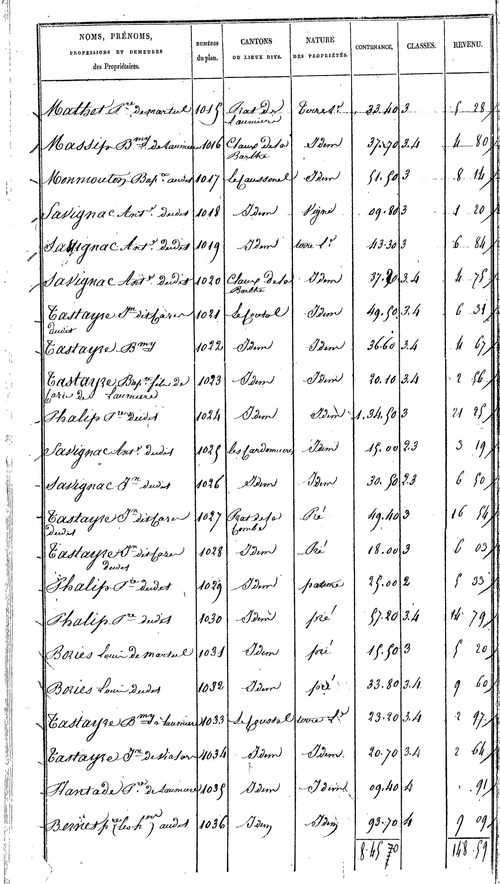 NOMS, PRÉNOMS, PROFESSIONS ET DEMEURES des Propriétaires. NUMÉROS du plan. CANTONS OU LIEUX DITS. NATURE DES PROPRIÉTÉS. CONTENANCE. CLASSES. REVENU.
Mathet Pre de martel 1015 Prat de laumiere terre lre 33.40 3 5 28
Massip Bmy de laumiere 1016 Claux de la Barthe Idem 37.70 3.4 4 80
Monmouton Bapte audit 1017 51.50 3 8 14
Savignac Ante dudit 1018 Idem Vigne 09.80 3 1 20
Savignac Ante dudit 1019 Idem terre lre 43.30 3 6 84
Savignac Ante dudit 1020 Claux de la Barthe Idem 3.4 4 75
Tastayre Jn dit 1021 Idem 49.50 3.4 6 31
dudit
Tastayre Bmy 1022 Idem Idem 36.60 3.4 4 67
Tastayre Bapte fils de 1023 Idem Idem 20.10 3.4 2 56
laumiere
Phalip Pre dudit 1024 Idem Idem 1.34.50 3 21 25
Savignac Ante dudit 1025 Idem 15.00 2.3 3 19
Savignac Jn dudit 1026 Idem Idem 30.50 2.3 6 50
Tastayre Jn dit 1027 Prat de la Combe Pré 49.40 3 16 54
dudit
Tastayre Jn dit 1028 Idem Pré 18.00 3 6 03
dudit
Phalip Pre dudit 1029 Idem pature 25.00 2 5 33
Phalip Pre dudit 1030 Idem pré 57.20 3.4 14 79
Bories Louis de martel 1031 Idem pré 15.50 3 5 20
Bories Louis dudit 1032 Idem pré 33.80 3.4 9 60
Tastayre Bmy à laumiere 1033 Le Coustal terre lre 23.20 3.4 2 97
Tastayre Jn 1034 Idem Idem 20.70 3.4 2 64
Plantade Pre de laumiere 1035 Idem Idem 09.40 4 . 91
pre (les hers) audit 1036 Idem Idem 93.70 4 9 09
8.45 70 148.59